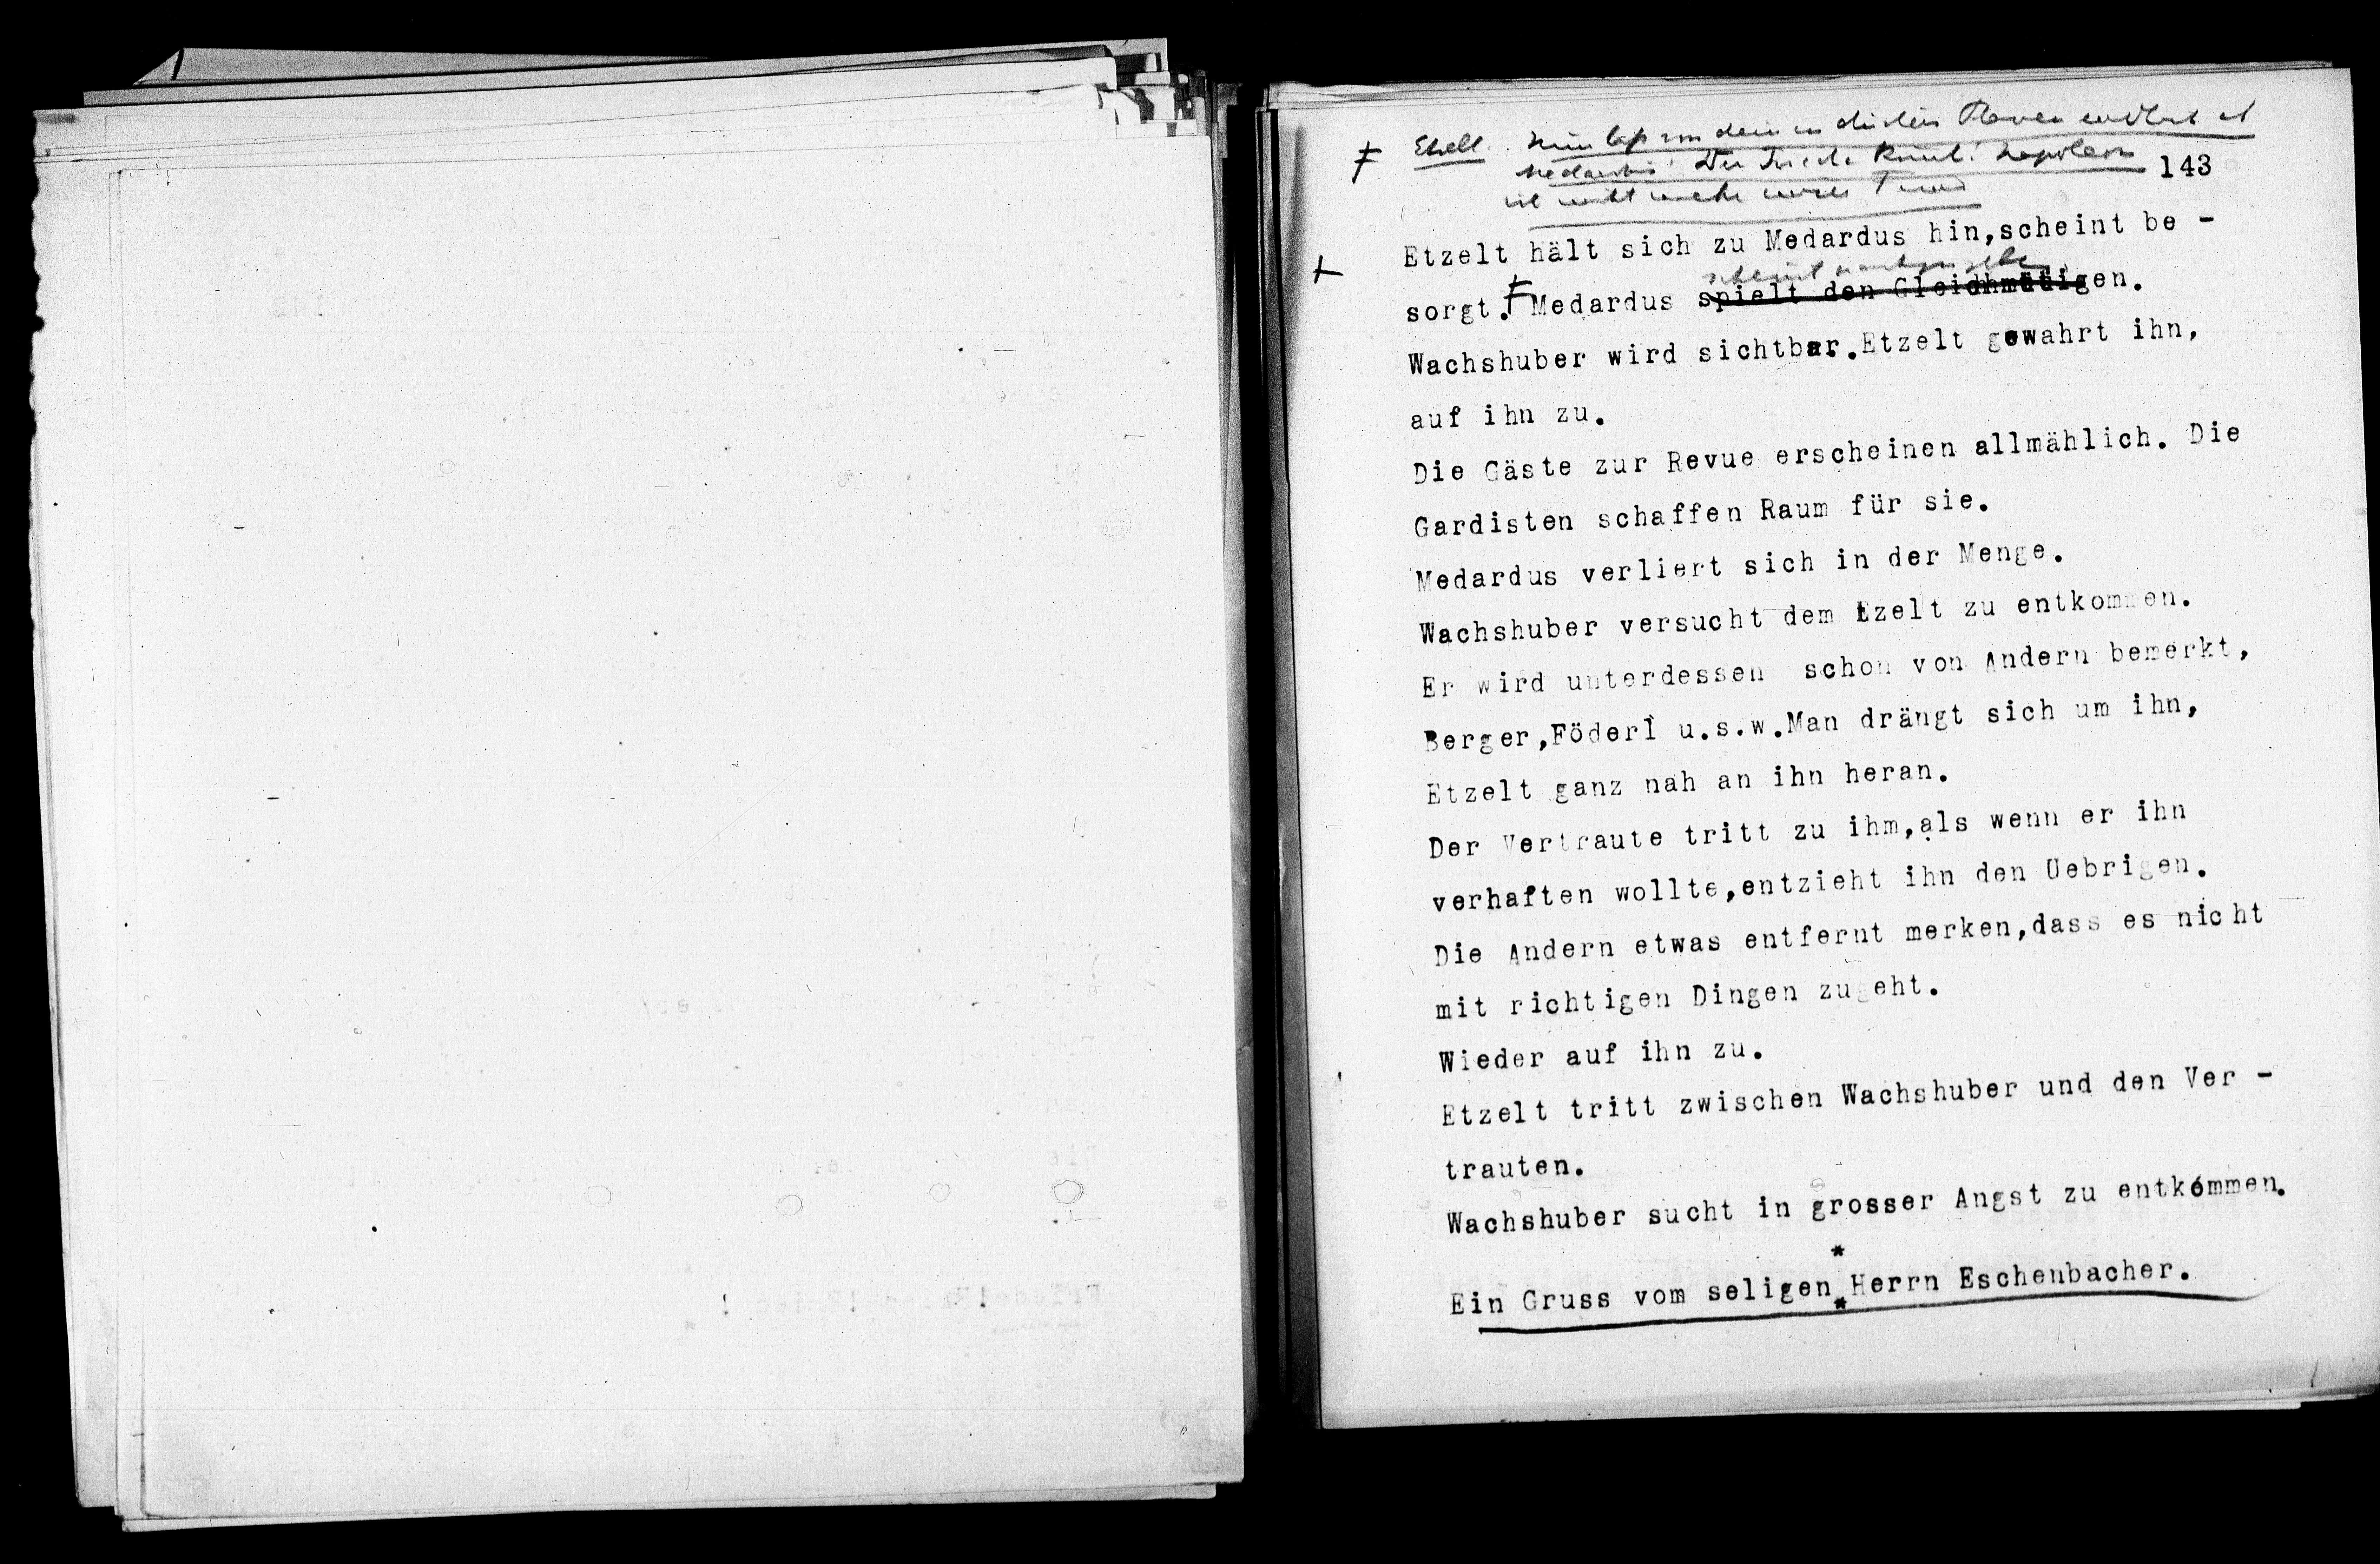 Etzelt. Nun lass von deinen düstern Plänen endlich ab
Medardus! Der Friede kommt! Napoleon
ist nicht mehr unser Feind
143
Etzelt hält sich zu Medardus hin,scheint be -
scheint nachzugeben
sorgt. Medardus spielt den Gleichmütigen.
Wachshuber wird sichtbar.Etzelt gewahrt ihn,
auf ihn zu.
Die Gäste zur Revue erscheinen allmählich. Die
Gardisten schaffen Raum für sie.
Medardus verliert sich in der Menge.
Wachshuber versucht dem Ezelt zu entkommen.
Er wird unterdessen schon von Andern bemerkt,
Berger,Föderl u.s.w.Man drängt sich um ihn,
Etzelt ganz nah an ihn heran.
Der Vertraute tritt zu ihm,als wenn er ihn
verhaften wollte,entzieht ihn den Uebrigen.
Die Andern etwas entfernt merken,dass es nicht
mit richtigen Dingen zugeht.
Wieder auf ihn zu.
Etzelt tritt zwischen Wachshuber und den Ver -
trauten.
Wachshuber sucht in grosser Angst zu entkommen.
*
Ein Gruss vom seligen Herrn Eschenbacher.
*